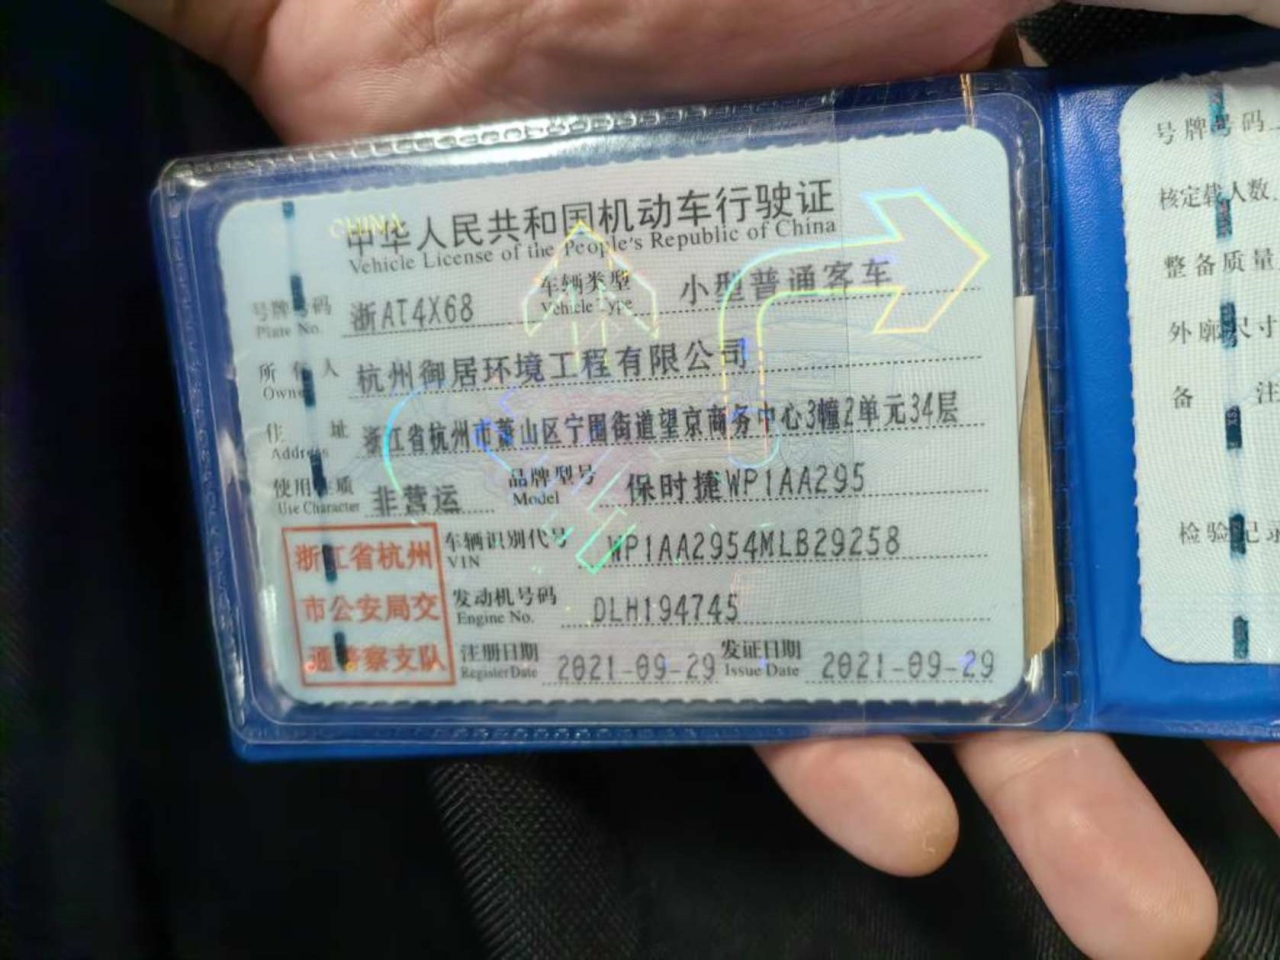 CHINA
中华人民共和国机动车行驶证
Vehicle License of the People's Republic of China
号牌号码 浙AT4X68 车辆类型 小型普通客车
Plate No. Vehicle Type
所有人 杭州御居环境工程有限公司
Owner
住址 浙江省杭州市萧山区宁围街道望京商务中心3幢2单元34层
Address
使用性质 非营运 品牌型号 保时捷WP1AA295
Use Character Model
浙江省杭州市公安局交通警察支队
车辆识别代号 WP1AA2954MLB29258
VIN
发动机号码 DLH194745
Engine No.
注册日期 2021-09-29 发证日期 2021-09-29
Register Date Issue Date
号牌号码
核定载人数
整备质量
外廓尺寸
备注
检验记录